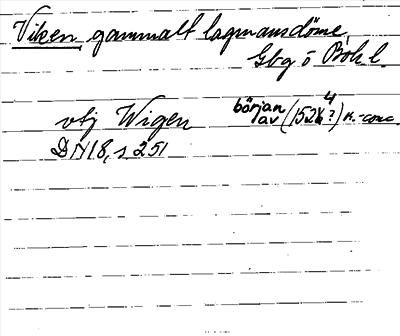 Viken, gammalt lagmansdöme,
Gbg o Boh l.
utj Wigen början av (1524?) K.-conc
DN 18, s 251